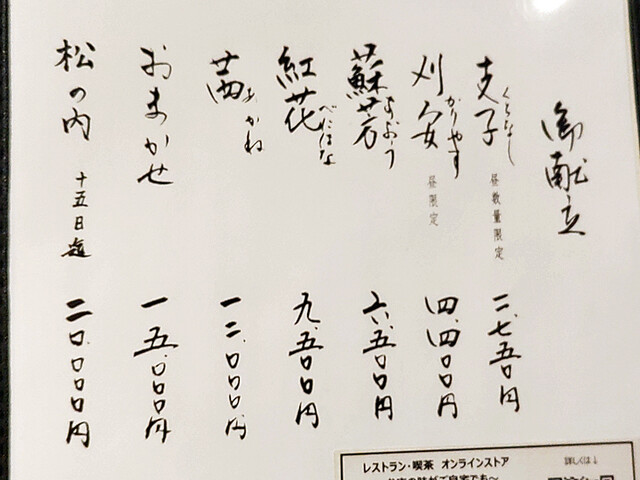 御献立
支子 くちなし 昼数量限定 二、七五〇円
刈安 かりやす 昼限定 四、四〇〇円
蘇芳 すおう 六、五〇〇円
紅花 べにはな 九、五〇〇円
茜 あかね 一二、〇〇〇円
おまかせ 一五、〇〇〇円
松の内 十五日迄 二〇、〇〇〇円
レストラン・喫茶 オンラインストア
詳しくは↓